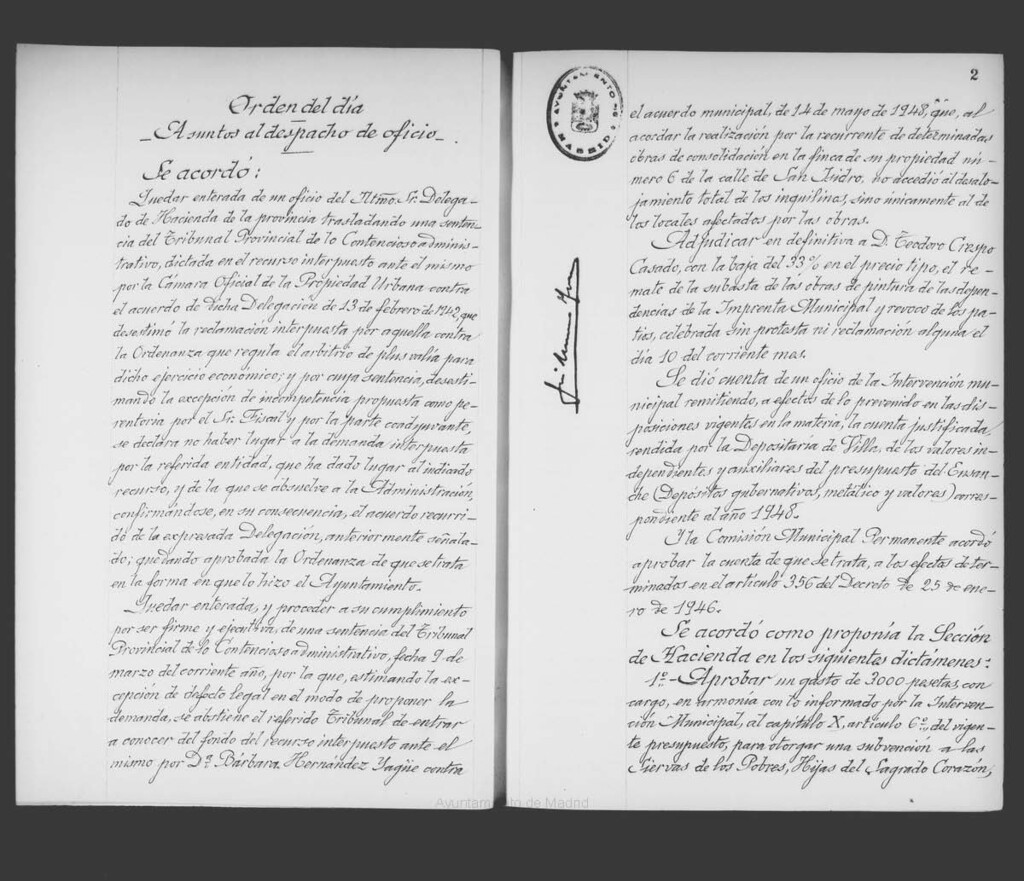 Orden del día
Asuntos al despacho de oficio
Se acordó:
Quedar enterada de un oficio del Iltmo. Sr. Delega-
do de Hacienda de la provincia trasladando una senten-
cia del Tribunal Provincial de lo Contencioso adminis-
trativo, dictada en el recurso interpuesto ante el mismo
por la Cámara Oficial de la Propiedad Urbana contra
el acuerdo de dicha Delegación de 13 de febrero de 1942, que
desestimó la reclamación interpuesta por aquella contra
la Ordenanza que regula el arbitrio de plus valía para
dicho ejercicio económico; y por cuya sentencia, desesti-
mando la excepción de incompetencia propuesta como pe-
rentoria por el Sr. Fiscal y por la parte coadyuvante,
se declara no haber lugar a la demanda interpuesta
por la referida entidad, que ha dado lugar al indicado
recurso, y de la que se absuelve a la Administración,
confirmándose, en su consecuencia, el acuerdo recurri-
do de la expresada Delegación, anteriormente señala-
do; quedando aprobada la Ordenanza de que se trata
en la forma en que lo hizo el Ayuntamiento.
Quedar enterada, y proceder a su cumplimiento
por ser firme y ejecutiva, de una sentencia del Tribunal
Provincial de lo Contencioso administrativo, fecha 9 de
marzo del corriente año, por la que, estimando la ex-
cepción de defecto legal en el modo de proponer la
demanda, se abstiene el referido Tribunal de entrar
a conocer del fondo del recurso interpuesto ante el
mismo por Dª. Bárbara Hernández Yagüe contra
AYUNTAMIENTO DE MADRID
2
el acuerdo municipal, de 14 de mayo de 1948, que, al
acordar la realización por la recurrente de determinadas
obras de consolidación en la finca de su propiedad nú-
mero 6 de la calle de San Isidro, no accedió al desalo-
jamiento total de los inquilinos, sino únicamente al de
los locales afectados por las obras.
Adjudicar en definitiva a D. Teodoro Crespo
Casado, con la baja del 33% en el precio tipo, el re-
mate de la subasta de las obras de pintura de las depen-
dencias de la Imprenta Municipal y revoco de los pa-
tios, celebrada sin protesta ni reclamación alguna el
día 10 del corriente mes.
Se dió cuenta de un oficio de la Intervención mu-
nicipal remitiendo, a efectos de lo prevenido en las dis-
posiciones vigentes en la materia, la cuenta justificada,
rendida por la Depositaría de Villa, de los valores in-
dependientes y auxiliares del presupuesto del Ensan-
che (Depósitos gubernativos, metálico y valores) corres-
pondiente al año 1948.
Y la Comisión Municipal Permanente acordó
aprobar la cuenta de que se trata, a los efectos deter-
minados en el artículo 356 del Decreto de 25 de ene-
ro de 1946.
Se acordó como proponía la Sección
de Hacienda en los siguientes dictámenes:
1º.- Aprobar un gasto de 3000 pesetas, con
cargo, en armonía con lo informado por la Interven-
ción Municipal, al capítulo X, artículo 6º, del vigen-
te presupuesto, para otorgar una subvención a las
Siervas de los Pobres, Hijas del Sagrado Corazón,
Ayuntamiento de Madrid